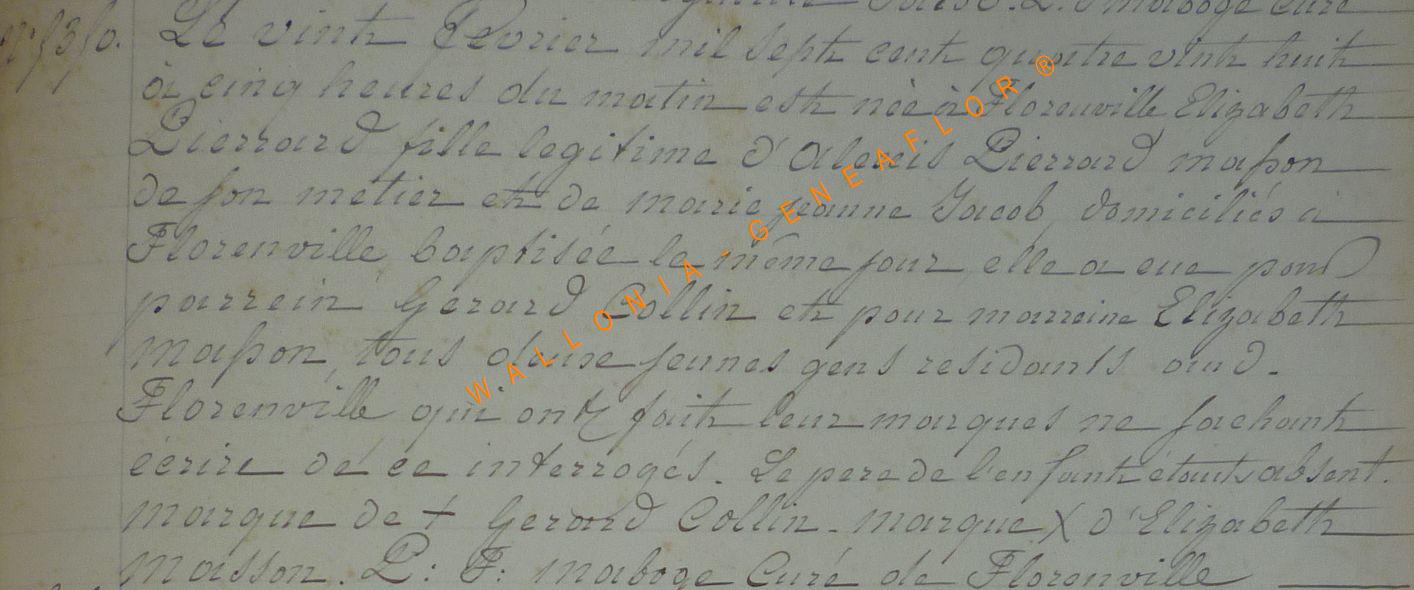 L. J. maboge Curé
Le vint Fevrier mil sept cent quatre vint huit
à cinq heures du matin est née à Florenville Elizabeth
Pierrard fille legitime d'Alexis Pierrard maſson
de ſon metier et de marie jeanne Jacob, domiciliés à
Florenville baptisée le même jour, elle a eue pour
parrein Gerard Collin et pour marreine Elizabeth
maſson, tous deuxe jeunes gens residants aud.
Florenville qui ont fait leur marques ne ſachant
écrire de ce interrogés. Le pere de l'enfant étant absent.
marque de + Gerard Collin - marque X d'Elizabeth
masson. L: F: maboge Curé de Florenville
WALLONIA - GENEAFLOR ®